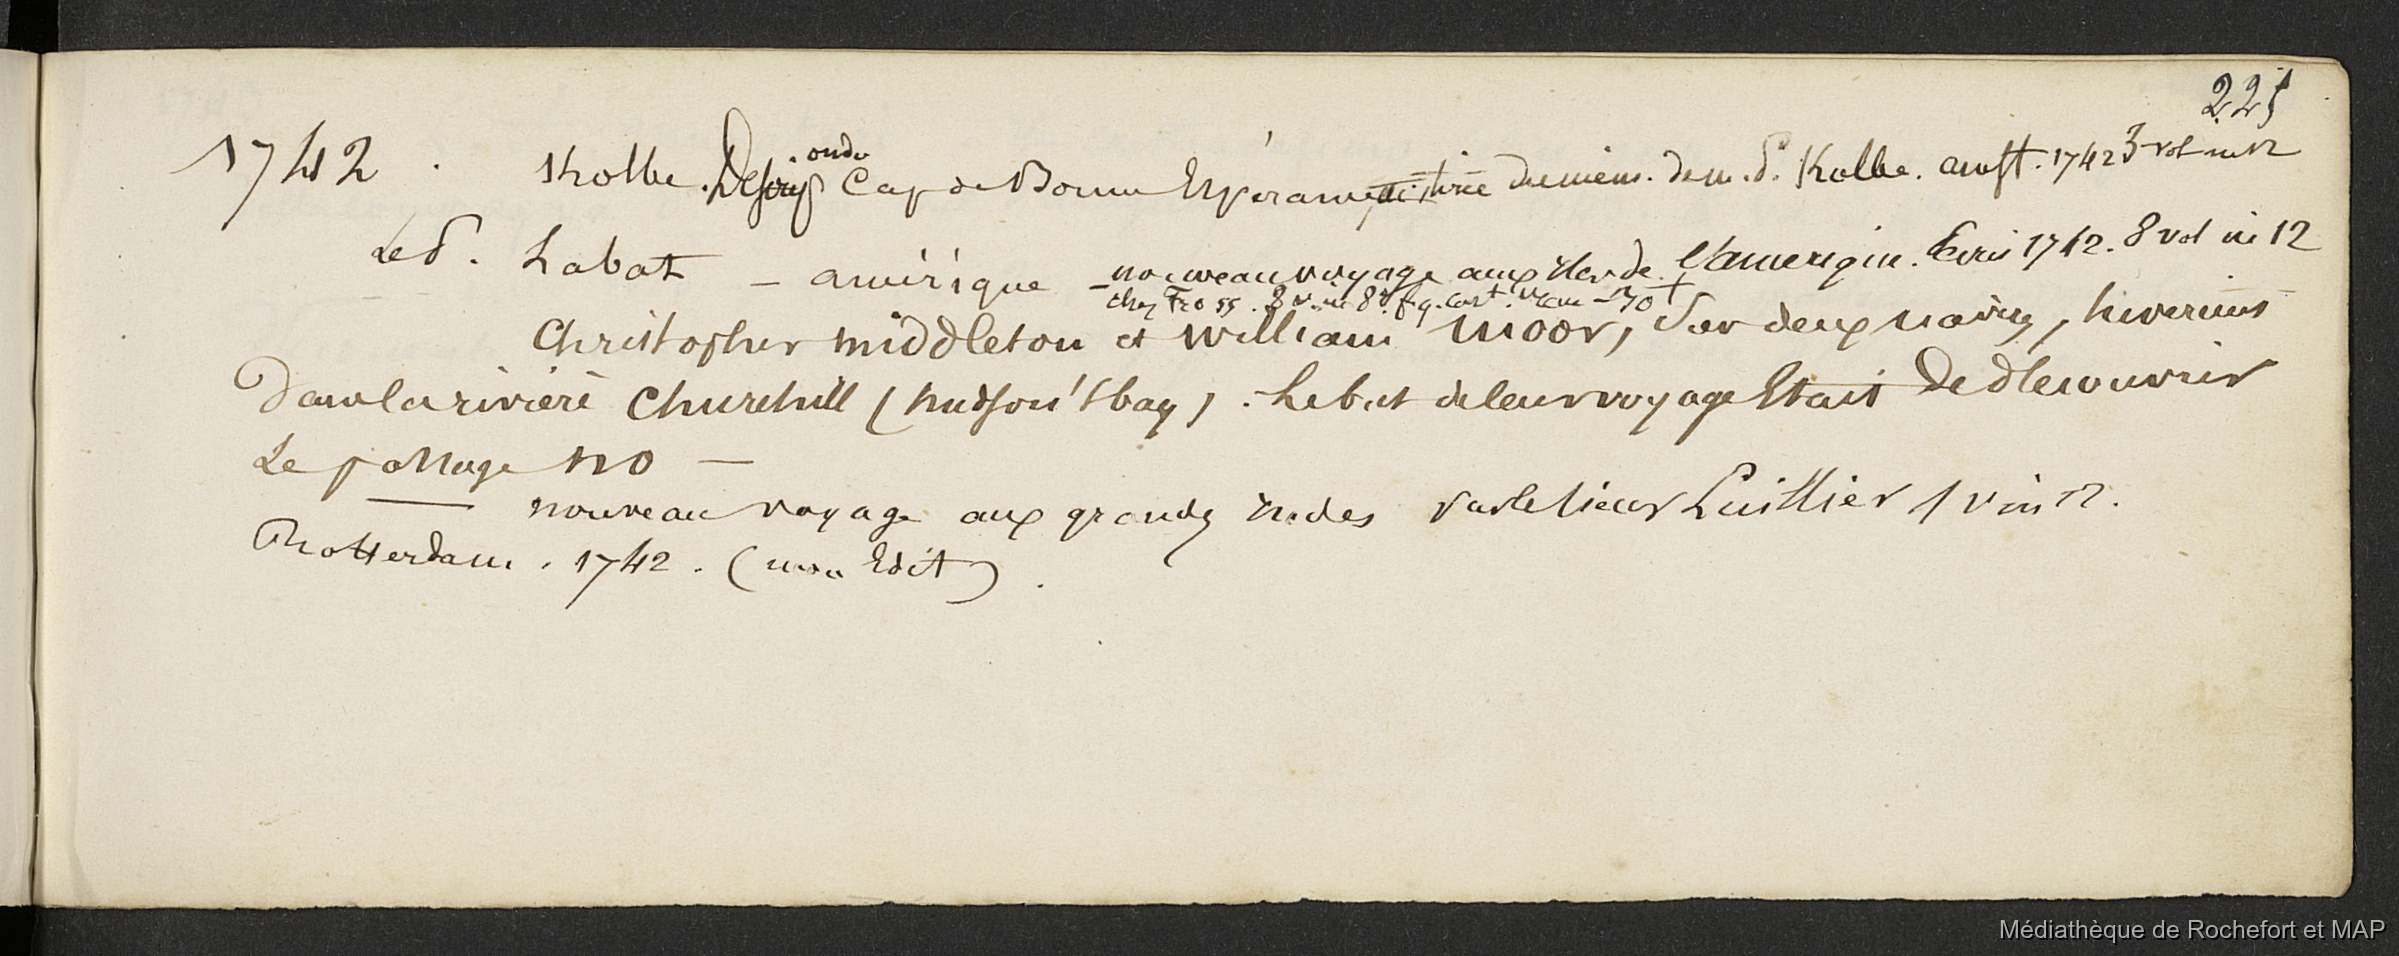 225
1742 . Kolbe. Descrip on du Cap de Bonne Espérance tirée des mém. de m. P. Kolbe. amst. 1742 3 vol in 12
Le P. Labat — amérique — nouveau voyage aux isles de l'amerique. Paris 1742. 8 vol in 12
chez Tross. 8 v. in 8°. fig. cart.
Christopher middleton et William moor, sur deux navires, hivernent
dans la rivière Churchill (hudson's bay). Le but de leur voyage Etait de découvrir
Le passage NO —
— nouveau voyage aux grandes indes par le sieur Luillier 1 v in 12.
Rotterdam. 1742. (mon Edit).
Médiathèque de Rochefort et MAP